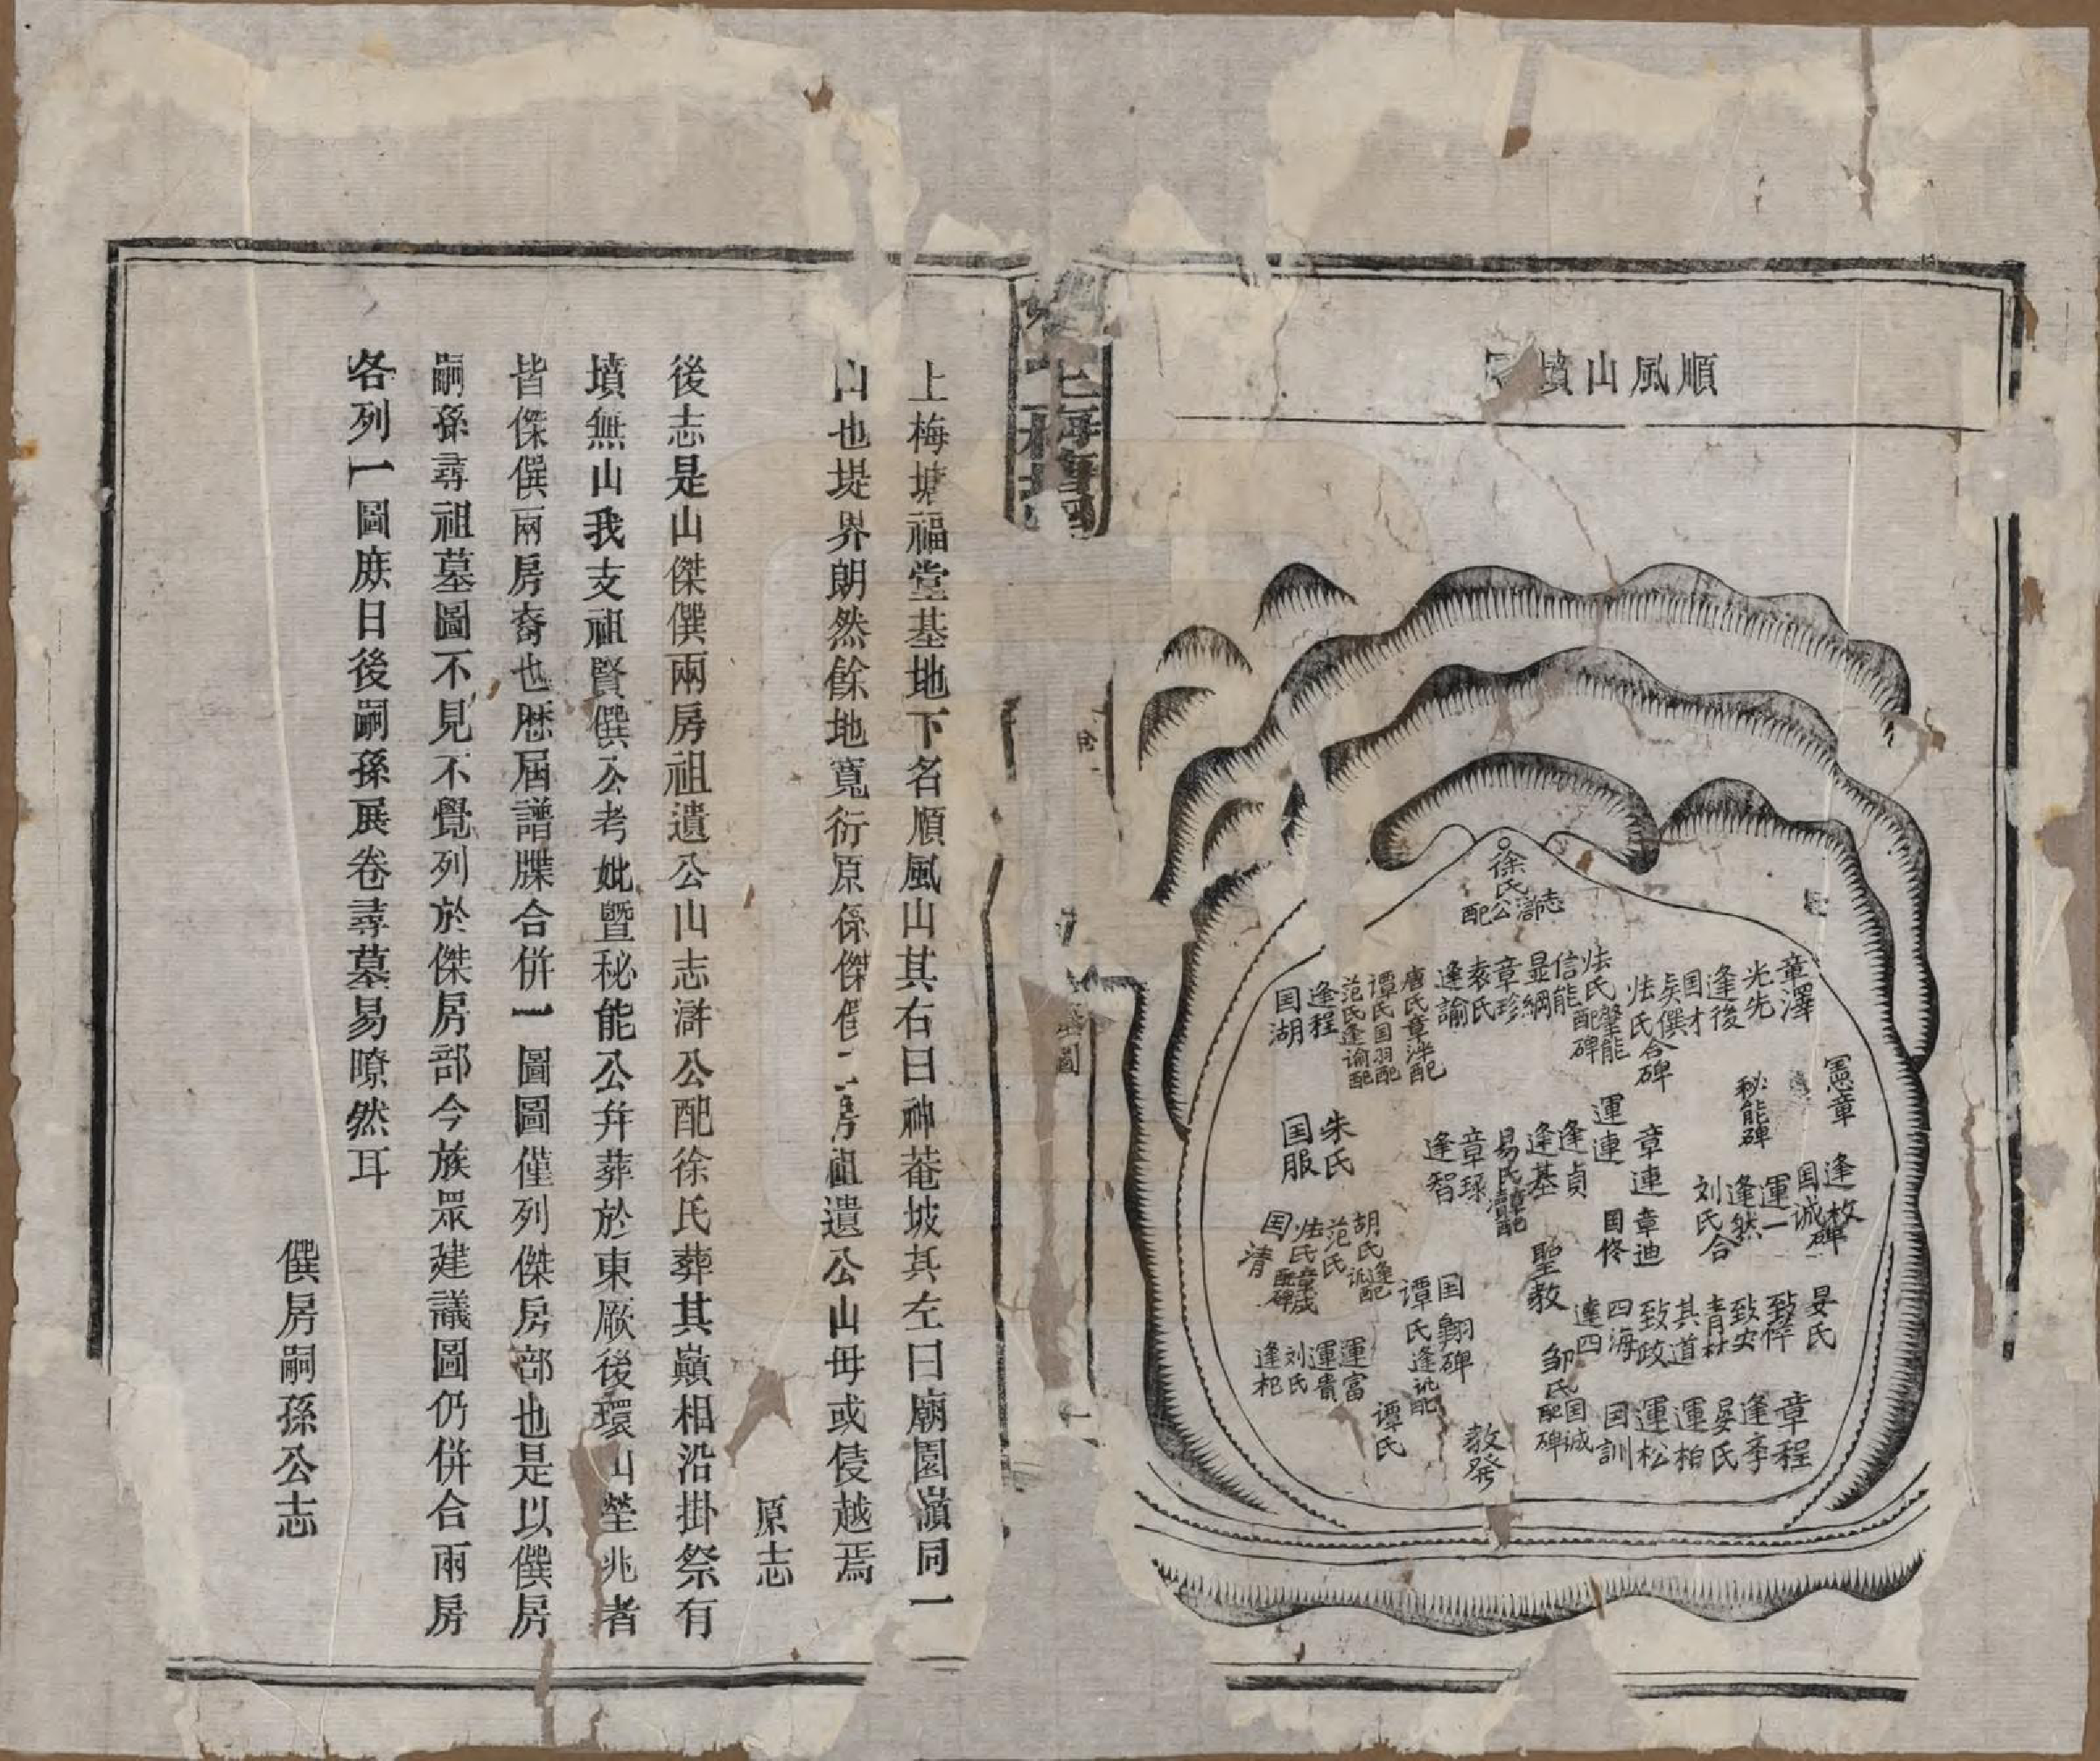 順風山墳
徐氏
志滸公配
章澤
光先
逢後
国才
矣僎
法氏合碑
法氏肇能配碑
信能
显綱
章珍
袁氏
逢諭
唐氏章泮配
譚氏国羽配
范氏逢谕配
逢程
国湖
憲章
秘能碑
運連
章連
逢貞
逢基
易氏
章球
逢智
朱氏
国服
逢枚
国诚碑
運一
逢然
刘氏合
章迪
国佟
聖教
胡氏逢诚配
范氏
法氏章成配碑
国清
国翱碑
譚氏逢訛配
晏氏
致倬
致史
青材
其道
致政
四海
逢四
邹氏国诚配碑
運富
運貴
刘氏
逢杞
譚氏
教発
章程
逢李
晏氏
運柏
運松
国訓
上梅塘
墓圖
上梅塘福堂基地下名順風山其右曰神菴坡其左曰廟園嶺同一
山也堤界朗然餘地寬衍原係傑僎二房祖遺公山毋或侵越焉
原志
後志是山傑僎兩房祖遺公山志滸公配徐氏葬其巔相沿掛祭有
墳無山我支祖賢僎公考妣暨秘能公幷葬於東厥後環山塋兆者
皆傑僎兩房裔也歷屆譜牒合併一圖圖僅列傑房部也是以僎房
嗣孫尋祖墓圖不見不覺列於傑房部今族眾建議圖仍併合兩房
各列一圖庶日後嗣孫展卷尋墓易瞭然耳
僎房嗣孫公志